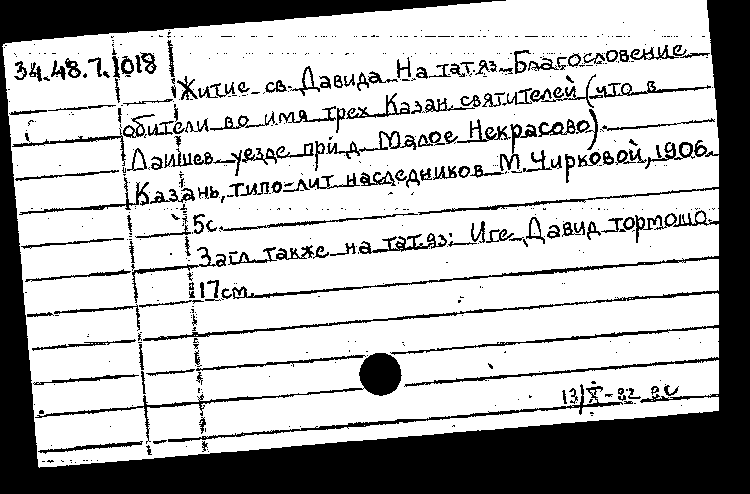 34.48.7.1018
Житие св. Давида. На тат.яз. Благословение
обители во имя трех Казан. святителей (что в
Лаишев. уезде при д. Малое Некрасово).
Казань, типо-лит наследников М. Чирковой, 1906.
5с.
Загл. также на тат.яз: Иге Давид тормошо.
17см.
13/X-82